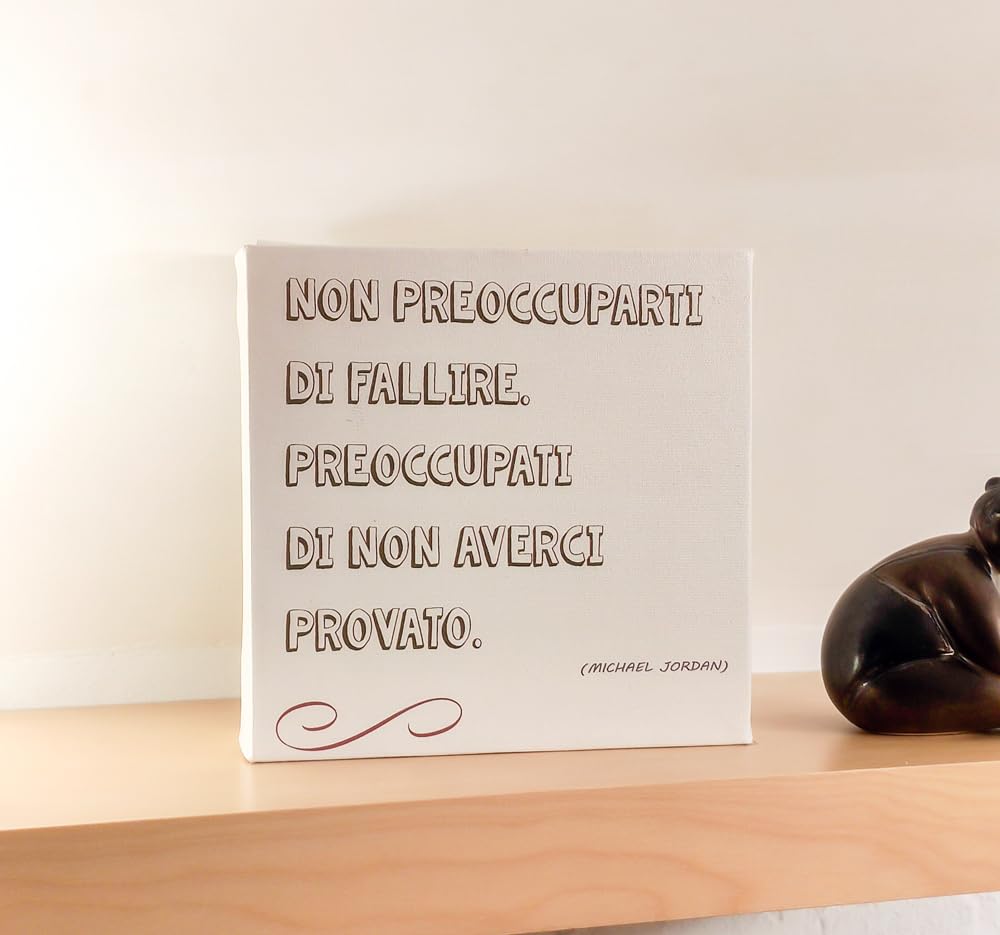 NON PREOCCUPARTI
DI FALLIRE.
PREOCCUPATI
DI NON AVERCI
PROVATO.
(MICHAEL JORDAN)